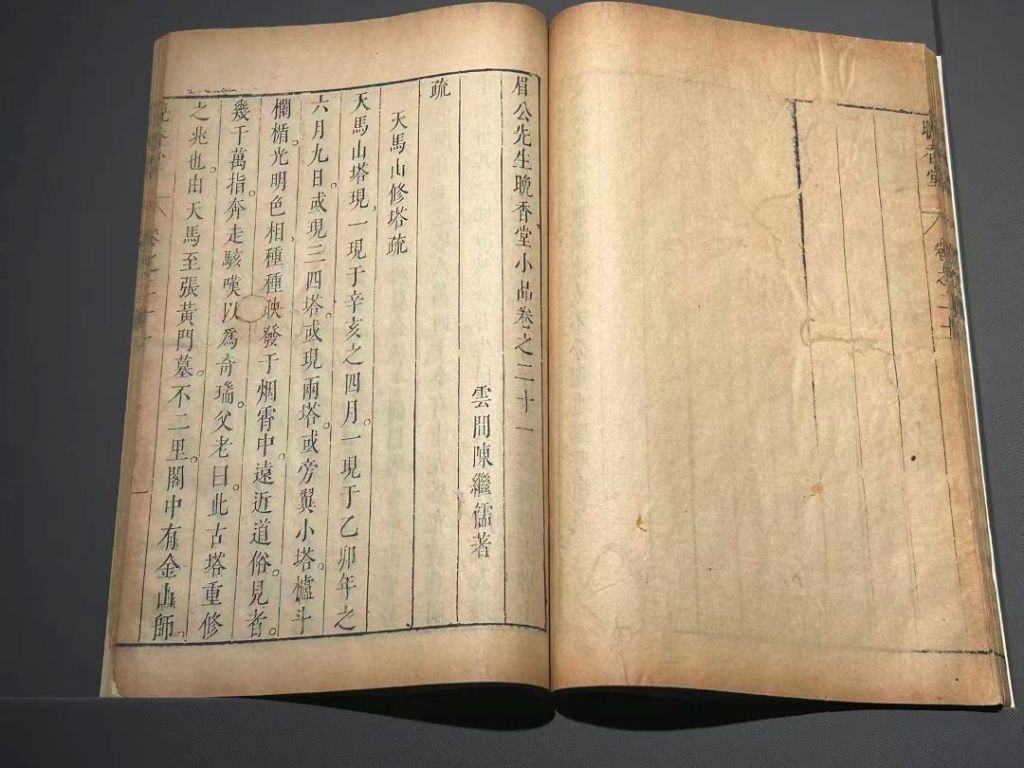 眉公先生晚香堂小品卷之二十一
雲間陳繼儒著
疏
天馬山修塔疏
天馬山塔現一現于辛亥之四月一現于乙卯年之
六月九日或現三四塔或現兩塔或旁翼小塔櫨斗
欄楯光明色相種種映發于烟霄中遠近道俗見者
幾千萬指奔走駭嘆以爲奇瑞父老曰此古塔重修
之兆也由天馬至張黃門墓不二里閣中有金山師